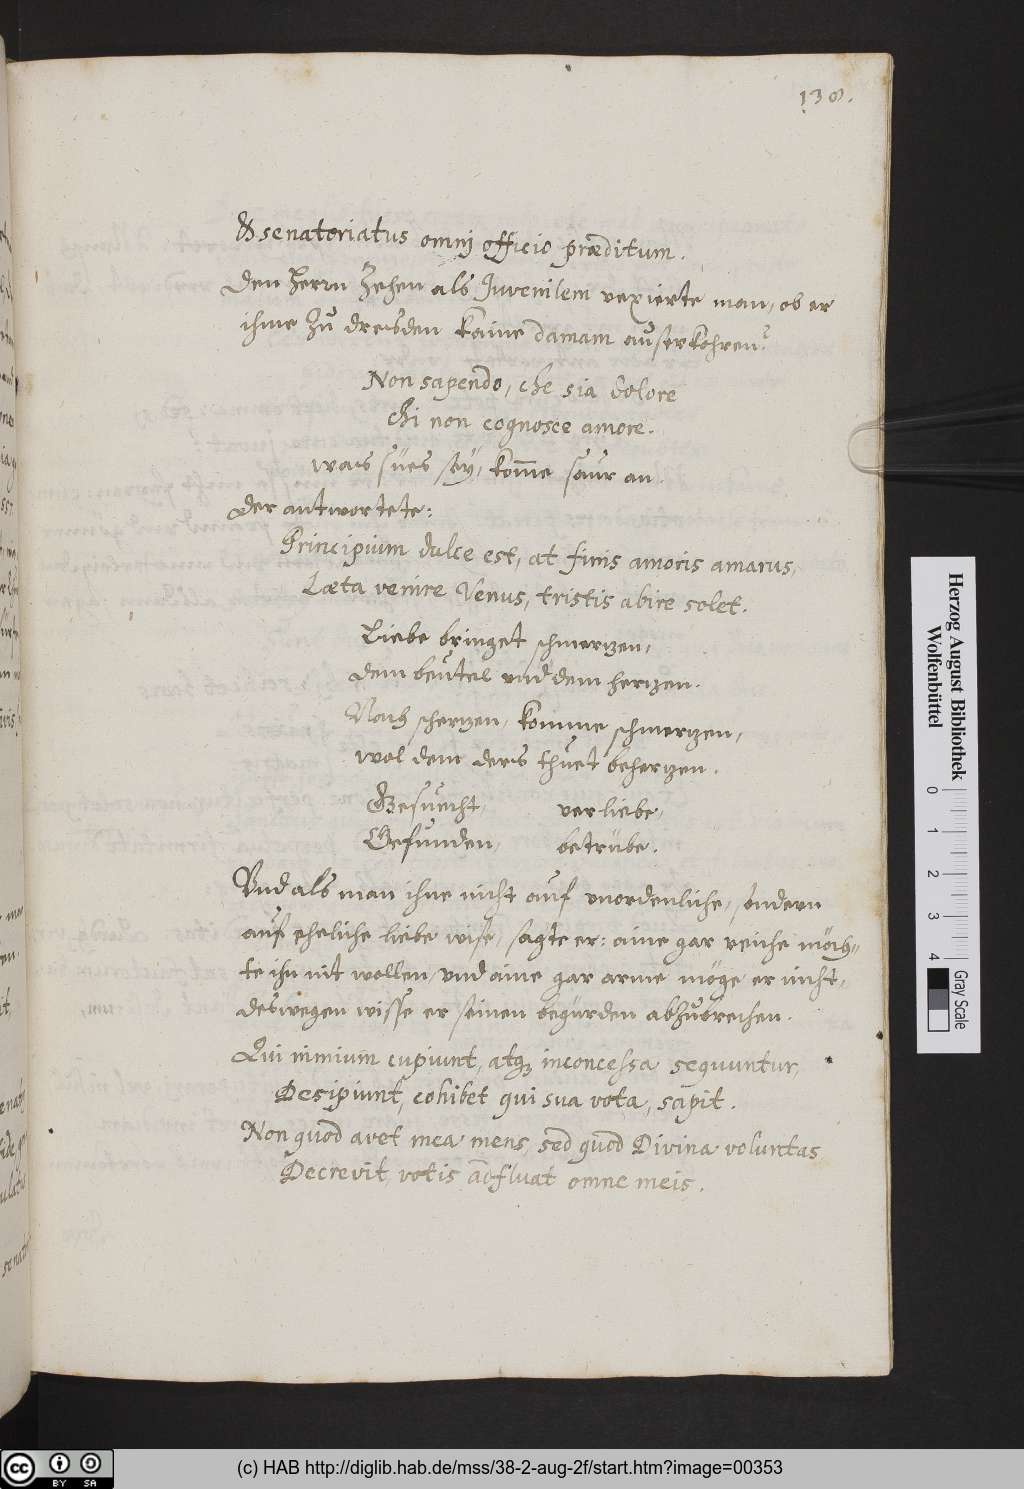 138.
& senatoriatus omnj officio præditum.
Den herrn Zehen als Juvenilem vexierte man, ob er
ihme zu dresden kaine damam außerkohren?
Non sapendo, che sia dolore
Chi non cognosce amore.
was sües seÿ, kom̄e saur an.
der antwortete:
Principium dulce est, at finis amoris amarus,
Læta venire Venus, tristis abire solet.
Liebe bringet schmertzen,
dem beutel und dem hertzen.
Nach schertzen, komme schmertzen,
wol dem ders thuet behertzen.
Gesucht, verliebe,
Gefunden, betrübe.
Und als man ihne nicht auf unordenliche, sondern
auf eheliche liebe wise, sagte er: aine gar reiche möch-
te ihn nit wollen, und aine gar arme möge er nicht,
deswegen wisse er seinen begürden abzubrechen.
Qui nimium cupiunt, atq; inconcessa sequuntur,
Desipiunt, cohibet qui sua vota, sapit.
Non quod avet mea mens, sed quod Divina voluntas
Decrevit, votis adfluat omne meis.
Herzog August Bibliothek
Wolfenbüttel
0 1 2 3 4
Gray Scale
cc BY SA
(c) HAB http://diglib.hab.de/mss/38-2-aug-2f/start.htm?image=00353